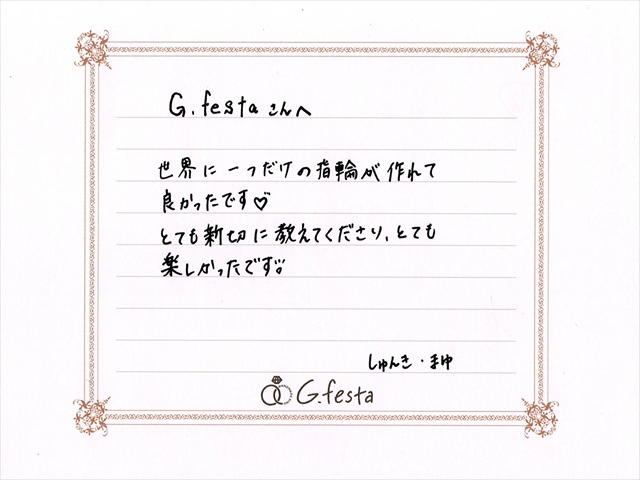 G.festaさんへ
世界に一つだけの指輪が作れて
良かったです♡
とても新切に教えてくださり、とても
楽しかったです!!
しゅんき・まゆ
G.festa